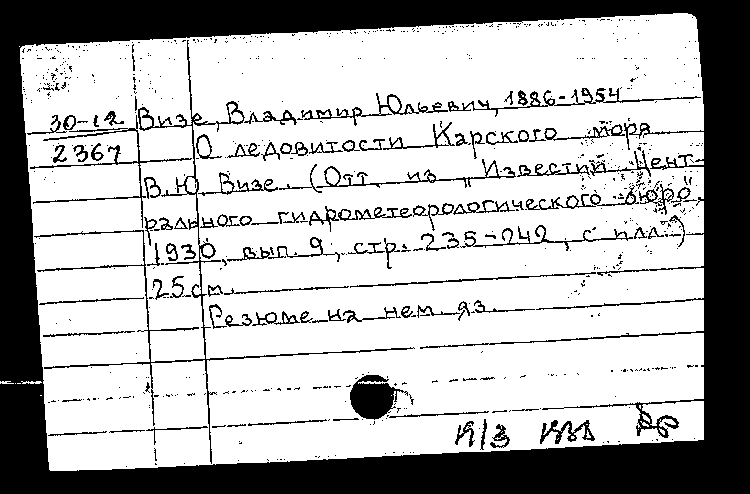 30-12 Визе, Владимир Юльевич, 1886-1954
2367 О ледовитости Карского моря
В.Ю. Визе. (Отт. из „Известий Цент-
рального гидрометеорологического бюро",
1930, вып. 9, стр. 235-242, с илл.)
25 см.
Резюме на нем. яз.